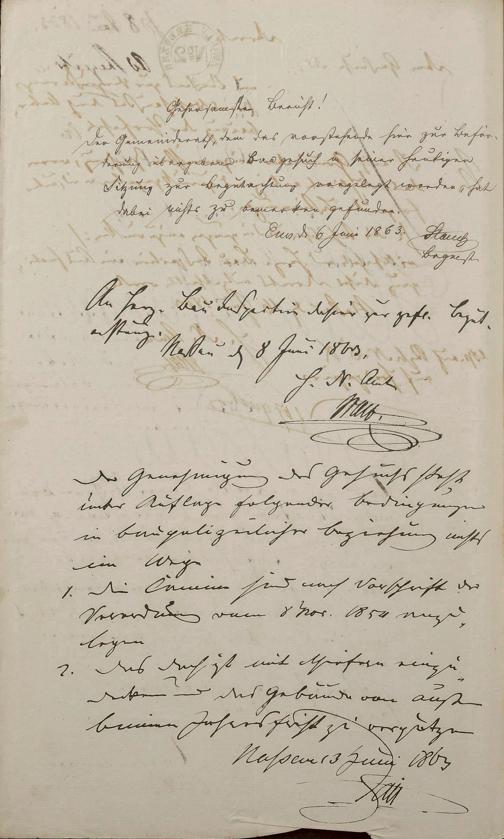 Gehorsamster Bericht!
Der Gemeinderath, dem das vorstehende hier zur Beför-
derung übergebene Baugesuch in seiner heutigen
Sitzung zur Begutachtung vorgelegt worden, hat
dabei nichts zu bemerken gefunden.
Ems, d. 6 Juni 1863.
An Herz. Bau Inspection dahier zur gefl. Begut-
achtung.
Nassau d. 8 Juni 1863.
H. N. Amt
Der Genehmigung des Gesuchs steht
unter Auflage folgender Bedingungen
in baupolizeilicher Beziehung nichts
im Wege
1. Die Camine sind nach Vorschrift der
Verordnung vom 8 Nov. 1854 anzu-
legen
2. das Dach ist mit Schiefern einzu-
decken und das Gebäude von außen
binnen Jahresfrist zu verputzen
Nassau 13 Juni 1863